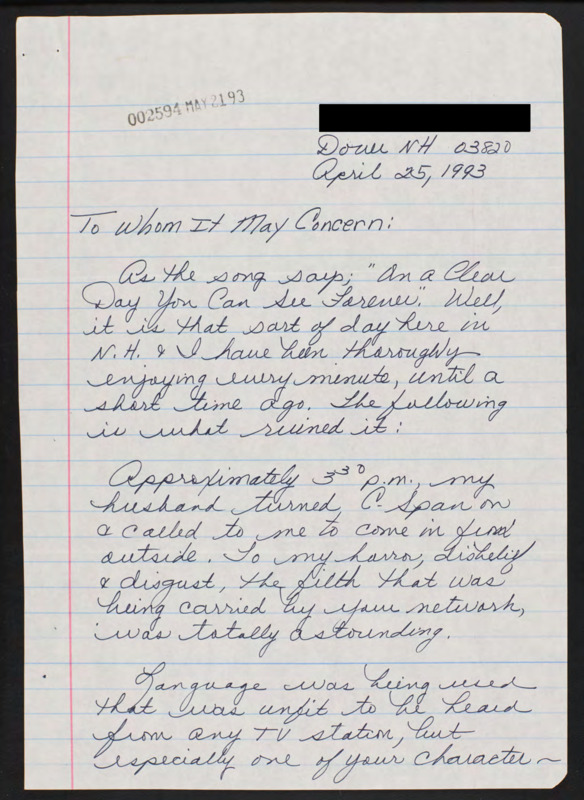 002594 MAY 21 93
Dover NH 03820
April 25, 1993
To Whom It May Concern:
As the song says; "On a Clear
Day You Can See Forever". Well,
it is that sort of day here in
N.H. & I have been thoroughly
enjoying every minute, until a
short time ago. The following
is what ruined it:
Approximately 3³⁰ p.m., my
husband turned C-Span on
& called to me to come in from
outside. To my horror, disbelief
& disgust, the filth that was
being carried by your network,
was totally astounding.
Language was being used
that was unfit to be heard
from any TV station, but
especially one of your character ~